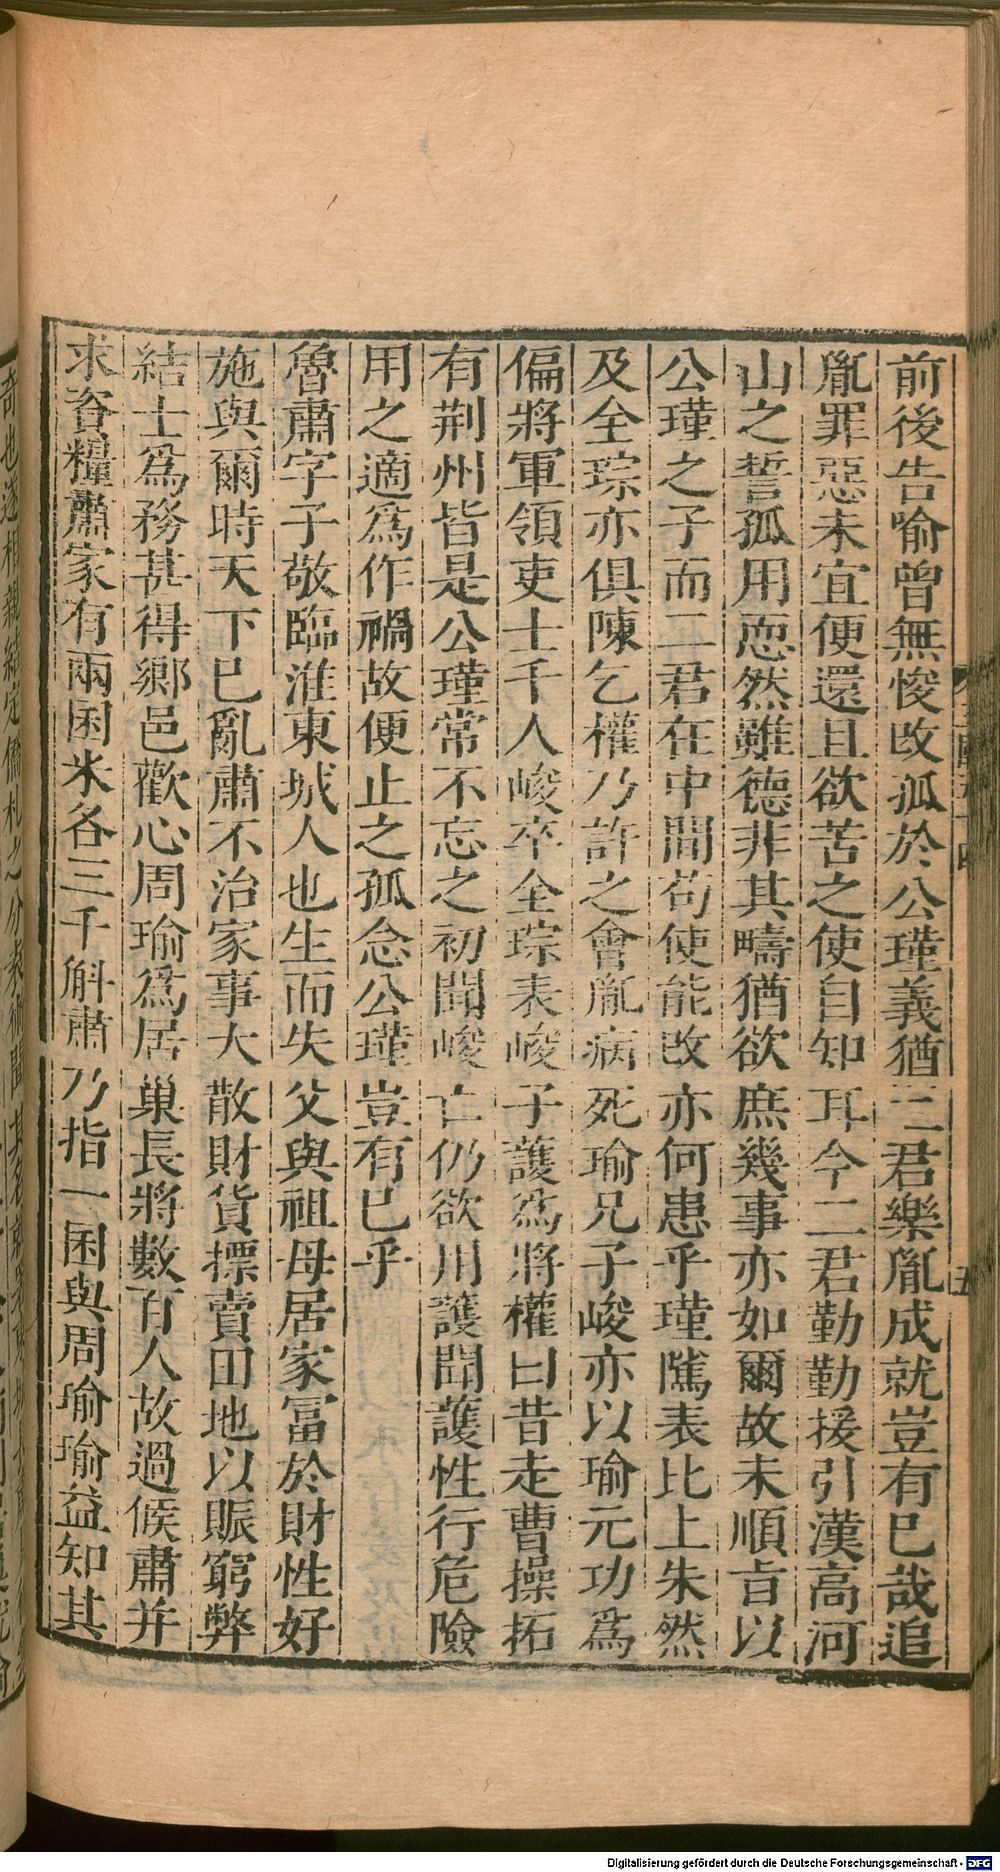 前後告喻曾無悛改孤於公瑾義猶二君樂胤成就豈有已哉追
胤罪惡未宜便還且欲苦之使自知耳今二君勤勤援引漢高河
山之誓孤用恧然雖德非其疇猶欲庶幾事亦如爾故未順旨以
公瑾之子而二君在中間苟使能改亦何患乎瑾隲表比上朱然
及全琮亦俱陳乞權乃許之會胤病死瑜兄子峻亦以瑜元功爲
偏將軍領吏士千人峻卒全琮表峻子護爲將權曰昔走曹操拓
有荆州皆是公瑾常不忘之初聞峻亡仍欲用護聞護性行危險
用之適爲作禍故便止之孤念公瑾豈有已乎
魯肅字子敬臨淮東城人也生而失父與祖母居家富於財性好
施與爾時天下已亂肅不治家事大散財貨摽賣田地以賑窮弊
結士爲務甚得鄉邑歡心周瑜爲居巢長將數百人故過候肅并
求資糧肅家有兩囷米各三千斛肅乃指一囷與周瑜瑜益知其
奇也遂相親結定僑札之分袁術聞其名就
五
Digitalisierung gefördert durch die Deutsche Forschungsgemeinschaft - DFG